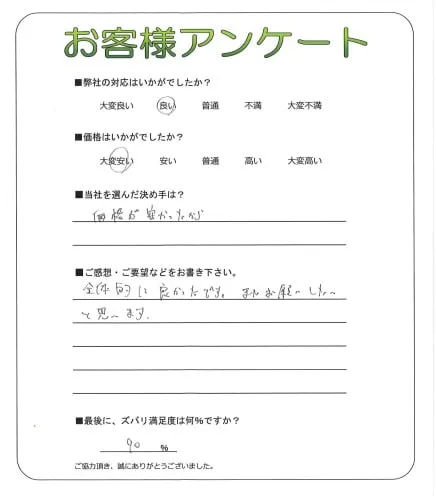 お客様アンケート
■弊社の対応はいかがでしたか？
大変良い 良い 普通 不満 大変不満
■価格はいかがでしたか？
大変安い 安い 普通 高い 大変高い
■当社を選んだ決め手は？
価格が安かったから
■ご感想・ご要望などをお書き下さい。
全体的に良かったです。またお願いしたい
と思います.
■最後に、ズバリ満足度は何％ですか？
90 ％
ご協力頂き、誠にありがとうございました。